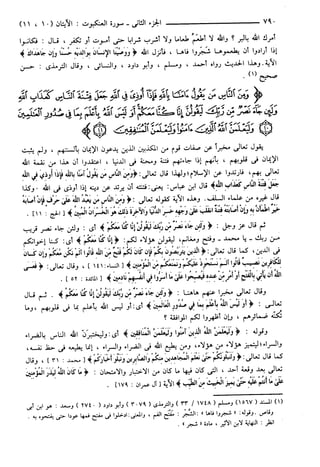 ٧٩٠ الجزء الثاني - سورة العنكبوت: الآيتان (١٠، ١١)
أمرك الله بالبر؟ والله لا أطعم طعاما ولا أشرب شرابا حتى أموت أو تكفر، قال: فكانوا
إذا أرادوا أن يطعموها شجروا فاها، فأنزل الله ﴿ ووصينا الإنسان بوالديه حسنا وإن جاهداك ﴾
الآية. وهذا الحديث رواه أحمد، ومسلم، وأبو داود، والنسائي، وقال الترمذي: حسن
صحيح (١).
﴿ ومن الناس من يقول آمنا بالله فإذا أوذي في الله جعل فتنة الناس كعذاب الله
ولئن جاء نصر من ربك ليقولن إنا كنا معكم أوليس الله بأعلم بما في صدور العالمين
﴿١٠﴾ وليعلمن الله الذين آمنوا وليعلمن المنافقين ﴿١١﴾ ﴾
يقول تعالى مخبرا عن صفات قوم من المكذبين الذين يدعون الإيمان بألسنتهم، ولم يثبت
الإيمان في قلوبهم، بأنهم إذا جاءتهم فتنة ومحنة في الدنيا، اعتقدوا أن هذا من نقمة الله
تعالى بهم، فارتدوا عن الإسلام ولهذا قال تعالى: ﴿ ومن الناس من يقول آمنا بالله فإذا أوذي في الله
جعل فتنة الناس كعذاب الله ﴾ قال ابن عباس: يعني: فتنته أن يرتد عن دينه إذا أوذي في الله. وكذا
قال غيره من علماء السلف. وهذه الآية كقوله تعالى: ﴿ ومن الناس من يعبد الله على حرف فإن أصابه
خير اطمأن به وإن أصابته فتنة انقلب على وجهه خسر الدنيا والآخرة ذلك هو الخسران المبين ﴾ [الحج: ١١].
ثم قال عز وجل: ﴿ ولئن جاء نصر من ربك ليقولن إنا كنا معكم ﴾ أي: ولئن جاء نصر قريب
من ربك - يا محمد - وفتح ومغانم، ليقولن هؤلاء لكم: ﴿ إنا كنا معكم ﴾ أي: كنا إخوانكم
في الدين، كما قال تعالى: ﴿ الذين يتربصون بكم فإن كان لكم فتح من الله قالوا ألم نكن معكم وإن كان
للكافرين نصيب قالوا ألم نستحوذ عليكم ونمنعكم من المؤمنين ﴾ [النساء: ١٤١]، وقال تعالى: ﴿ فعسى
الله أن يأتي بالفتح أو أمر من عنده فيصبحوا على ما أسروا في أنفسهم نادمين ﴾ [المائدة: ٥٢].
وقال تعالى مخبرا عنهم هاهنا: ﴿ ولئن جاء نصر من ربك ليقولن إنا كنا معكم ﴾، ثم قال
تعالى: ﴿ أوليس الله بأعلم بما في صدور العالمين ﴾ أي: أو ليس الله بأعلم بما في قلوبهم، وما
تكنه ضمائرهم، وإن أظهروا لكم الموافقة؟
وقوله: ﴿ وليعلمن الله الذين آمنوا وليعلمن المنافقين ﴾ أي: وليختبرن الله الناس بالضراء
والسراء ليتميز هؤلاء من هؤلاء، ومن يطيع الله في الضراء والسراء، إنما يطيعه في حظ نفسه،
كما قال تعالى: ﴿ ولنبلونكم حتى نعلم المجاهدين منكم والصابرين ونبلو أخباركم ﴾ [محمد: ٣١]، وقال
تعالى بعد وقعة أحد، التي كان فيها ما كان من الاختبار والامتحان: ﴿ ما كان الله ليذر المؤمنين
على ما أنتم عليه حتى يميز الخبيث من الطيب ﴾ الآية [آل عمران: ١٧٩].
(١) المسند (١٥٦٧) ومسلم (٣٣ / ١٧٤٨) والترمذي (٣٠٧٩) وأبو داود (٢٧٤٠) وسعد: هو ابن أبي
وقاص. وقوله: «شجروا فاها»: الشجر: مفتح الفم، والمعنى: أدخلوا في مفتح فمها عودا حتى يفتحوه به.
انظر: النهاية لابن الأثير، مادة «شجر».